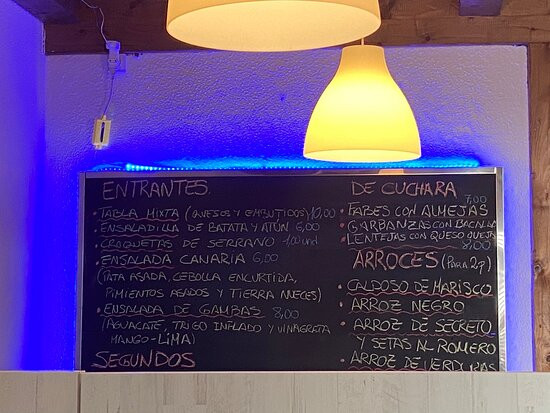 ENTRANTES
• TABLA MIXTA (QUESOS Y EMBUTIDOS) 10,00
• ENSALADILLA DE BATATA Y ATÚN 6,00
• CROQUETAS DE SERRANO 1,00 und
• ENSALADA CANARIA 6,00
(PATA ASADA, CEBOLLA ENCURTIDA,
PIMIENTOS ASADOS Y TIERRA NUECES)
• ENSALADA DE GAMBAS 8,00
(AGUACATE, TRIGO INFLADO Y VINAGRETA
MANGO-LIMA)
SEGUNDOS
DE CUCHARA
7,00
• FABES CON ALMEJAS
• GARBANZAS CON
• LENTEJAS CON QUESO
8,00
ARROCES (PARA 2p)
• CALDOSO DE MARISCO
• ARROZ NEGRO
• ARROZ DE SECRETO
Y SETAS AL ROMERO
• ARROZ DE VERDURAS